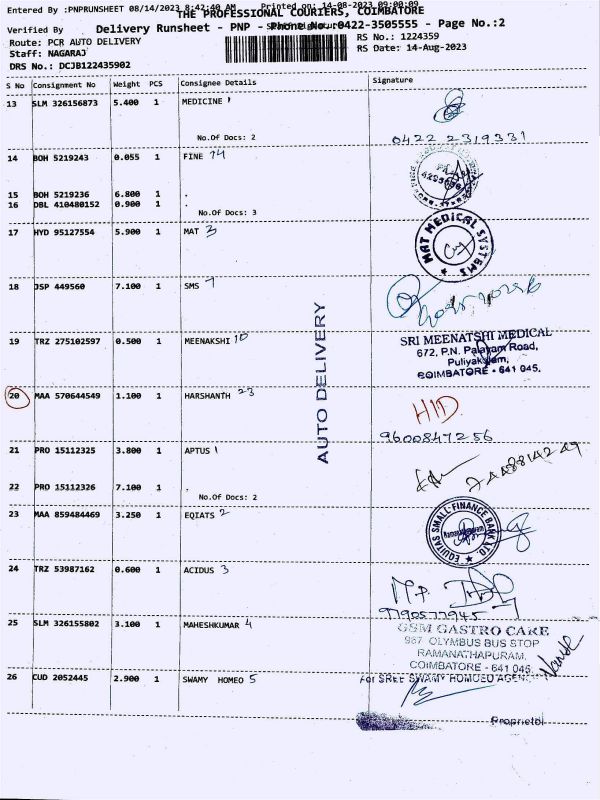 Entered By :PNPRUNSHEET 08/14/2023 8:42:40 AM Printed on: 14-08-2023 09:00:09
THE PROFESSIONAL COURIERS, COIMBATORE
Verified By Delivery Runsheet - PNP - Phone No.:0422-3505555 - Page No.:2
Route: PCR AUTO DELIVERY RS No.: 1224359
Staff: NAGARAJ RS Date: 14-Aug-2023
DRS No.: DCJB122435902
S No Consignment No Weight PCS Consignee Details Signature
13 SLM 326156873 5.400 1 MEDICINE 1
No.Of Docs: 2
0422 2319331
14 BOH 5219243 0.055 1 FINE 14
15 BOH 5219236 6.800 1 .
16 DBL 410480152 0.900 1 .
No.Of Docs: 3
17 HYD 95127554 5.900 1 MAT 3
MAT MEDICAL SYSTEMS
18 JSP 449560 7.100 1 SMS 7
AUTO DELIVERY
19 TRZ 275102597 0.500 1 MEENAKSHI 10
SRI MEENATSHI MEDICAL
672, P.N. Palayam Road,
Puliyakulam,
COIMBATORE - 641 045.
20 MAA 570644549 1.100 1 HARSHANTH 23
HID
9600847256
21 PRO 15112325 3.800 1 APTUS 1
22 PRO 15112326 7.100 1 .
No.Of Docs: 2
23 MAA 859484469 3.250 1 EQIATS 2
EQUITAS SMALL FINANCE BANK LTD.
24 TRZ 53987162 0.600 1 ACIDUS 3
25 SLM 326155802 3.100 1 MAHESHKUMAR 4
GSM GASTRO CARE
987 OLYMBUS BUS STOP
RAMANATHAPURAM,
COIMBATORE - 641 045.
26 CUD 2052445 2.900 1 SWAMY HOMEO 5
For SREE SWAMY HOMOEO
Proprietor